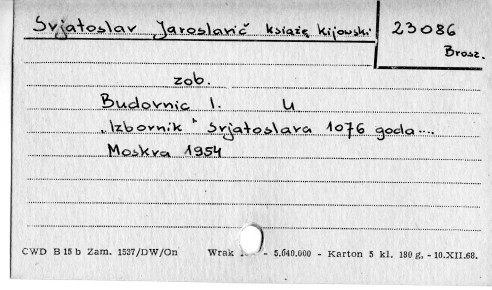 Svjatoslav Jaroslavič książę kijowski
23086
Brosz.
zob.
Budovnic I. U
"Izbornik" Svjatoslava 1076 goda....
Moskva 1954
CWD B 15 b Zam. 1537/DW/On Wrak - 5.640.000 - Karton 5 kl. 180 g. - 10.XII.68.